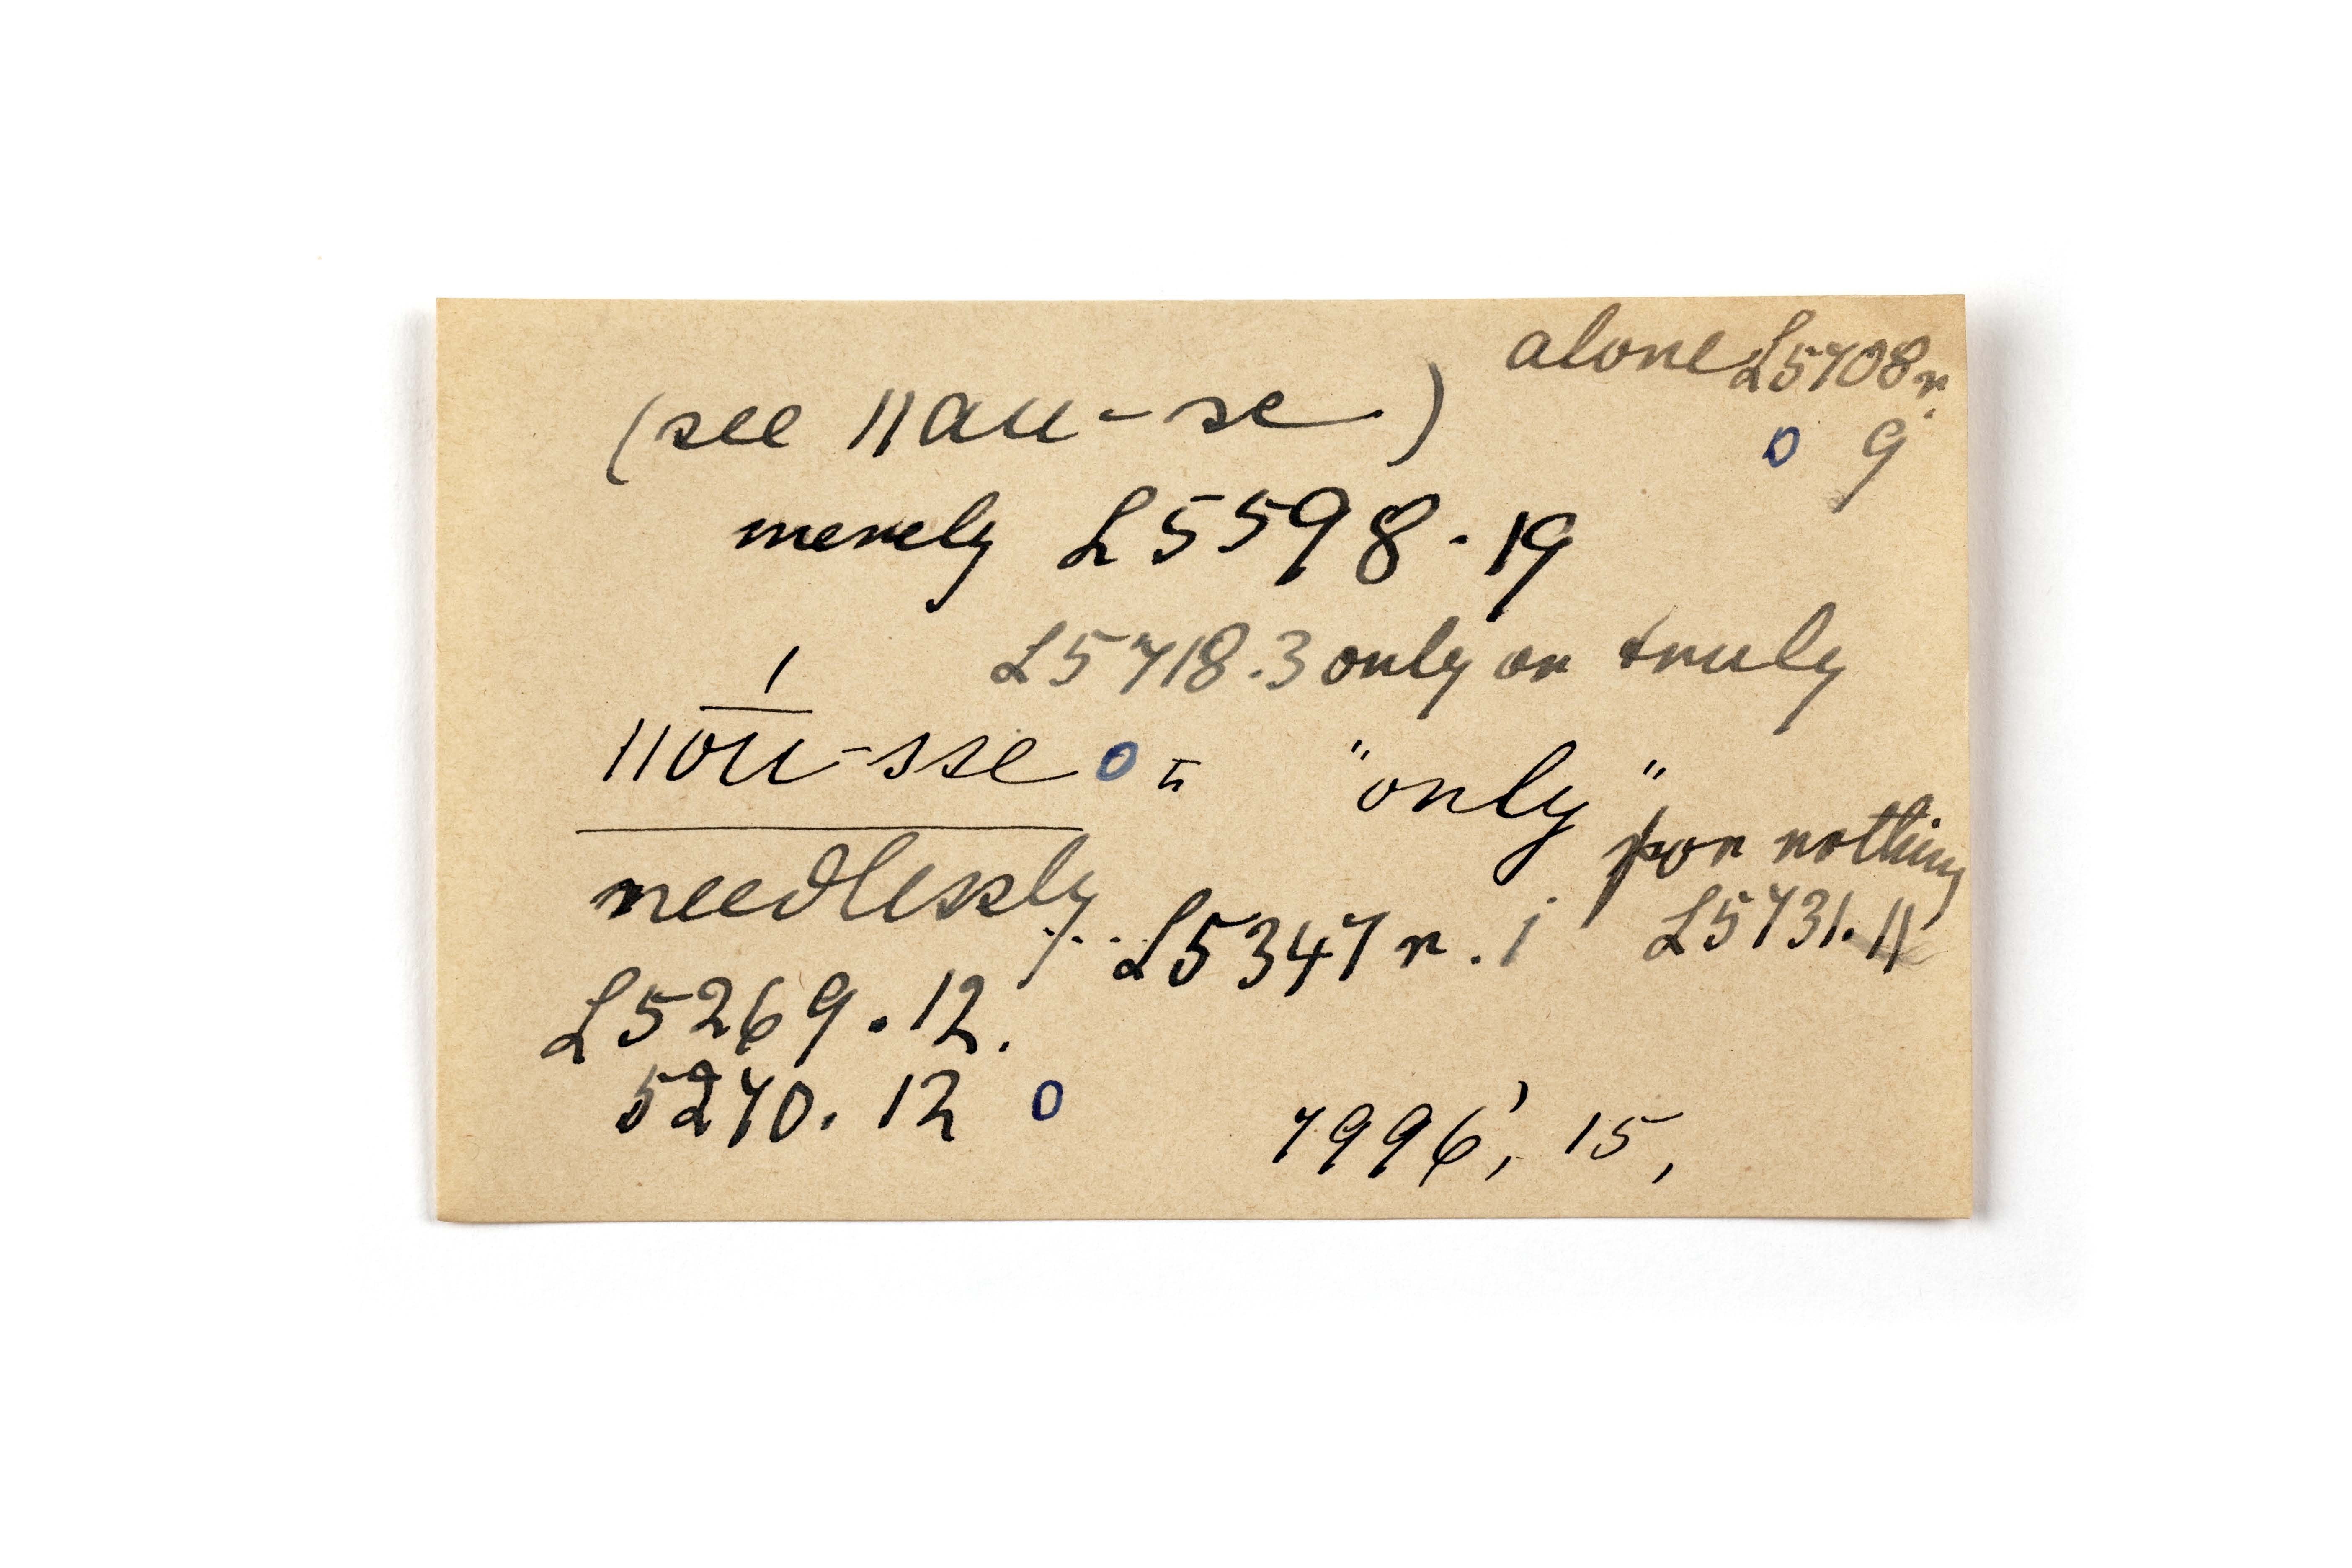 alone L5708r.
0 9
(see ǁau-se)
merely L5598.19
L5718.3 only or truly
ǁóū-sse 0 = "only"
for nothing
needlessly L5347r.1 L5731.11
L5269.12.
5270.12 0
7996', 15,